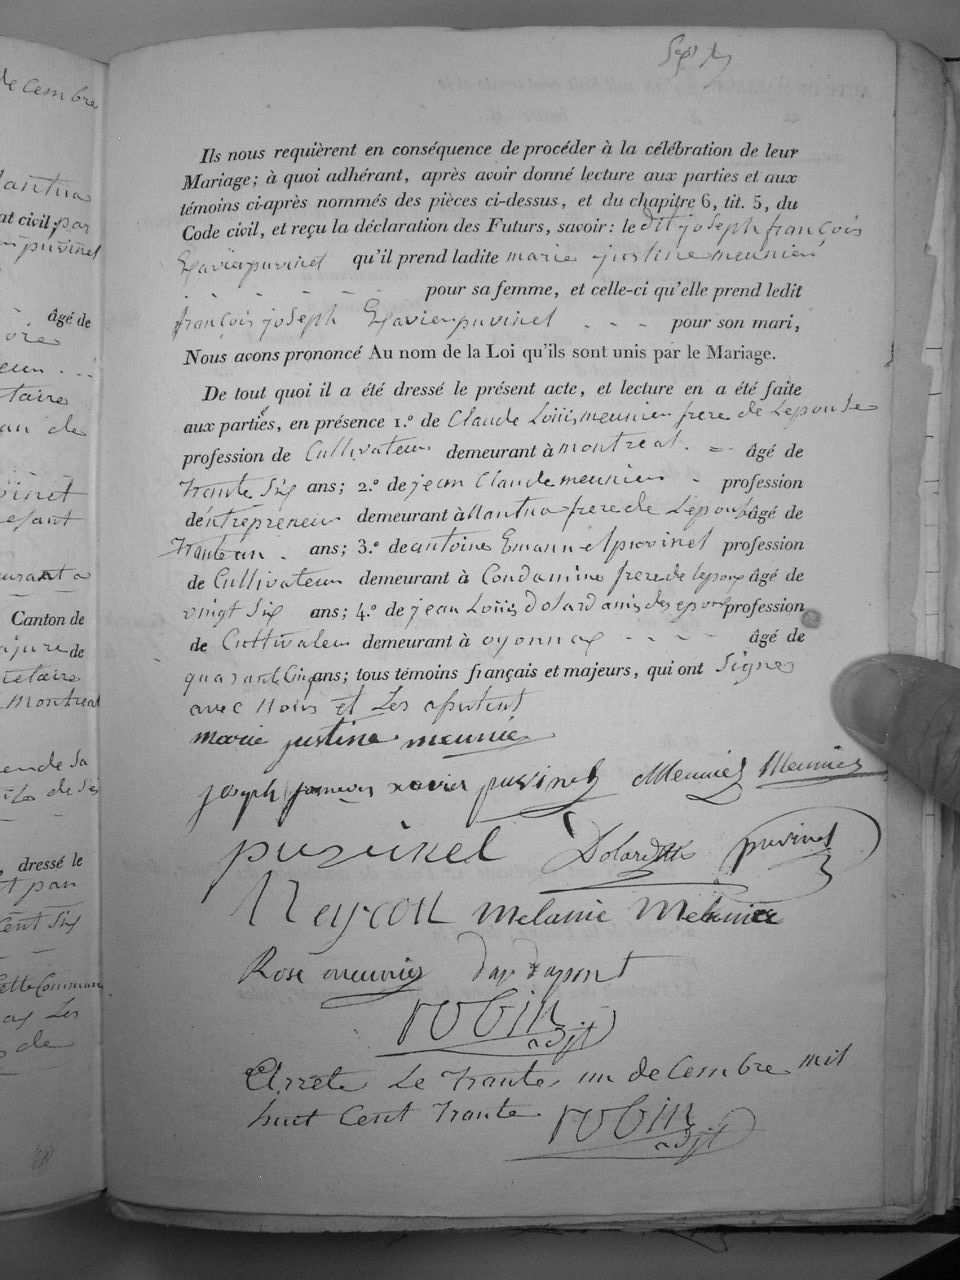 de cembre
Sept
Ils nous requièrent en conséquence de procéder à la célébration de leur
Mariage; à quoi adhérant, après avoir donné lecture aux parties et aux
témoins ci-après nommés des pièces ci-dessus, et du chapitre 6, tit. 5, du
Code civil, et reçu la déclaration des Futurs, savoir: le dit joseph françois
Exavier puvinel qu'il prend ladite marie justine meunier
pour sa femme, et celle-ci qu'elle prend ledit
françois joseph Exavier puvinel - - - pour son mari,
Nous avons prononcé Au nom de la Loi qu'ils sont unis par le Mariage.
De tout quoi il a été dressé le présent acte, et lecture en a été faite
aux parties, en présence 1.º de Claude Loüis meunier frere de Lepouse
profession de Cultivateur demeurant à montreal. âgé de
trante Six ans; 2.º de jean Claude meunier - profession
d'entrepreneur demeurant à Nantua frere de Lepouse âgé de
trante un . ans; 3.º de antoine Emannel puvinel profession
de Cultivateur demeurant à Condamine frere de lepoux âgé de
vingt Six ans; 4.º de jean Loüis dolard amis des epoux profession
de Cultivateur demeurant à oyonnax - - - - âgé de
quarant Cinq ans; tous témoins français et majeurs, qui ont Signes
avec Nous et Les
marie justine meunié
joseph francois xavier puvinel Meunier Meunier
puvinel Dolard puvinel
melanie Meunier
Rose meunier
robin
adjt
Arrete Le trante un de Cembre mil
huit Cent trante robin
adjt
antua
at civil; par
puvinel
âgé de
taire
an de
Canton de
de
Montreal
en de Sa
dressé le
Cent Six
Cette Commune
Les
de